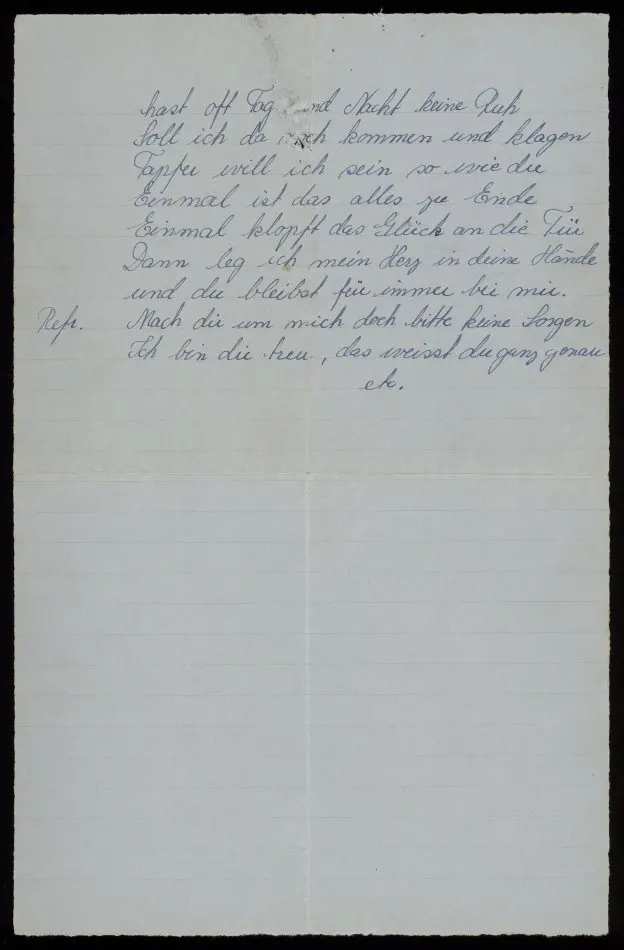 hast oft Tag und Nacht keine Ruh
Soll ich da noch kommen und klagen
Tapfer will ich sein so wie du
Einmal ist das alles zu Ende
Einmal klopft das Glück an die Tür
Dann leg ich mein Herz in deine Hände
und du bleibst für immer bei mir.
Refr. Mach dir um mich doch bitte keine Sorgen
Ich bin dir treu, das weisst du ganz genau
etc.